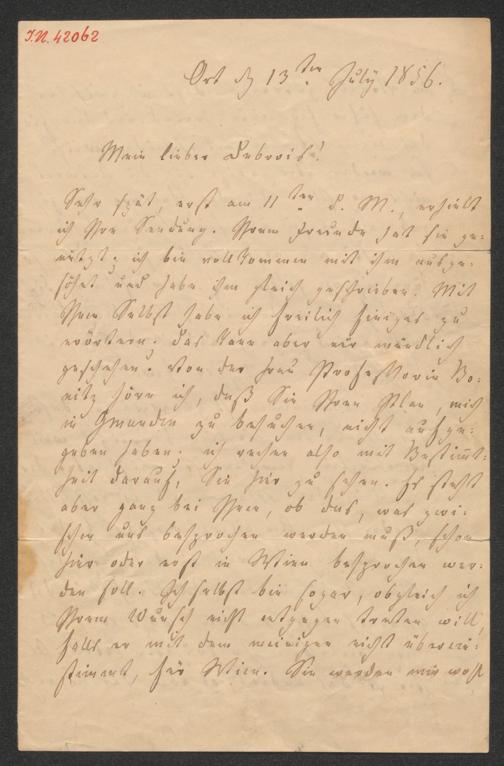 J.N. 42062
Ort d 13ten July 1856.
Mein lieber Debrois!
Sehr spät, erst am 11ten d. M., erhielt
ich Ihre Sendung. Ihrem Freunde hat sie ge-
nützt; ich bin vollkommen mit ihm ausge-
söhnt und habe ihm gleich geschrieben. Mit
Ihnen Selbst habe ich freilich Einiges zu
erörtern. Das kann aber nur mündlich
geschehen. Von der Frau Professorin Bo-
nitz höre ich, daß Sie Ihren Plan, mich
in Gmunden zu besuchen, nicht aufge-
geben haben; ich rechne also mit Bestimmt-
heit darauf, Sie hier zu sehen. Es steht
aber ganz bei Ihnen, ob das, was zwi-
schen uns besprochen werden muß, schon
hier oder erst in Wien besprochen wer-
den soll. Ich selbst bin sogar, obgleich ich
Ihrem Wunsch nicht entgegen treten will,
falls er mit dem meinigen nicht überein-
stimmt, für Wien. Sie werden mir wohl